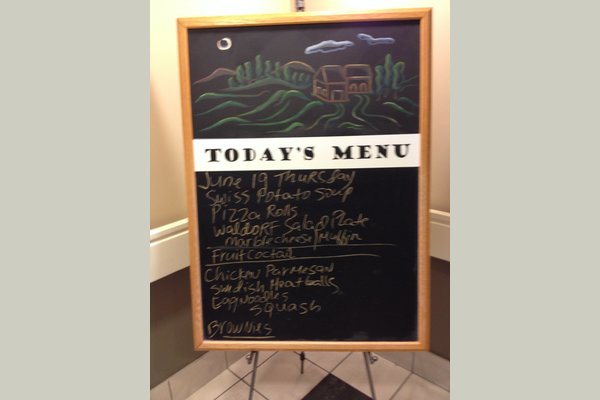 TODAY'S MENU
June 19 Thursday
Swiss Potato Soup
Pizza Rolls
Waldorf Salad Plate
Marblecheese/Muffin
Fruit Coctail
Chicken Parmesan
Swedish Meatballs
Eggnoodles
Squash
Brownies